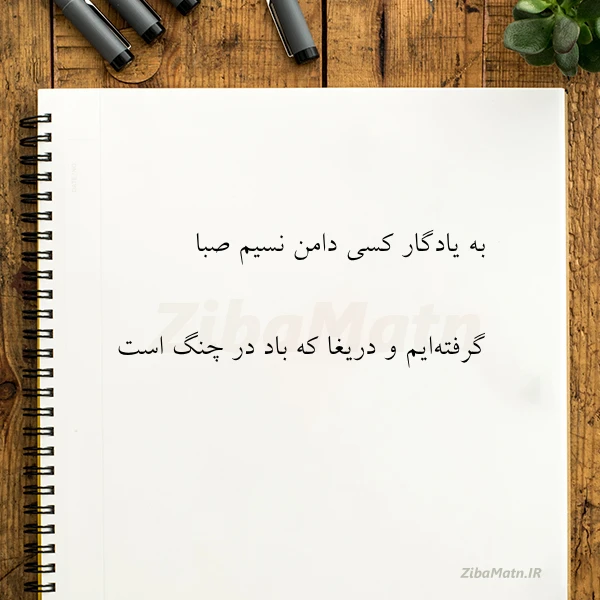 به یادگار کسی دامن نسیم صبا
ZibaMatn
گرفته‌ایم و دریغا که باد در چنگ است
ZibaMatn.IR